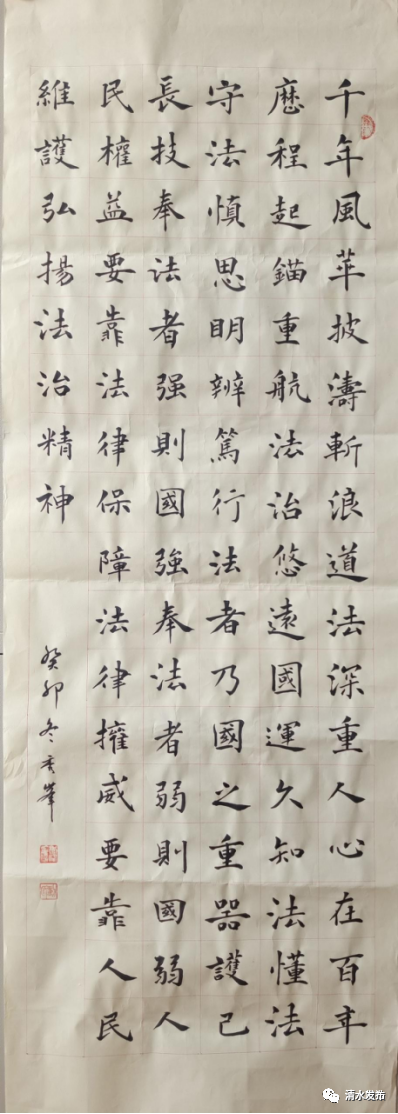 千年風華披濤斬浪道法深重人心在百年
歷程起錨重航法治悠遠國運久知法懂法
守法慎思明辨篤行法者乃國之重器護己
長技奉法者强則國強奉法者弱則國弱人
民權益要靠法律保障法律擁威要靠人民
維護弘揚法治精神
癸卯冬
清水发布